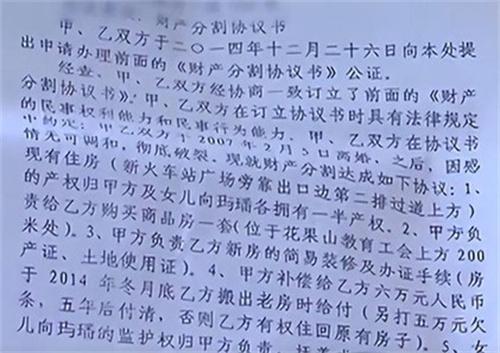 财产分割协议书
甲、乙双方于二〇一四年十二月二十六日向本处提
出申请办理前面的《财产分割协议书》公证。
经查，甲、乙双方经协商一致订立了前面的《财产
分割协议书》，甲、乙双方在订立协议书时具有法律规定
的民事权利能力和民事行为能力，甲、乙双方在协议书
中约定：甲乙双方于2007年2月5日离婚，之后，因感
情无可调和，彻底破裂，现就财产分割达成如下协议：1、
现有住房（新火车站广场旁靠出口边第二排过道上方）
的产权归甲方及女儿向玙璠各拥有一半产权。2、甲方负
责给乙方购买商品房一套（位于花果山教育工会上方200
米处）。3、甲方负责乙方新房的简易装修及办证手续（房
产证、土地使用证）。4、甲方补偿给乙方六万元人民币
于2014年冬月底乙方搬出老房时给付（另打五万元欠
条，五年后付清，否则乙方有权住回原有房子）。5、女
儿向玙璠的监护权归甲方负责，